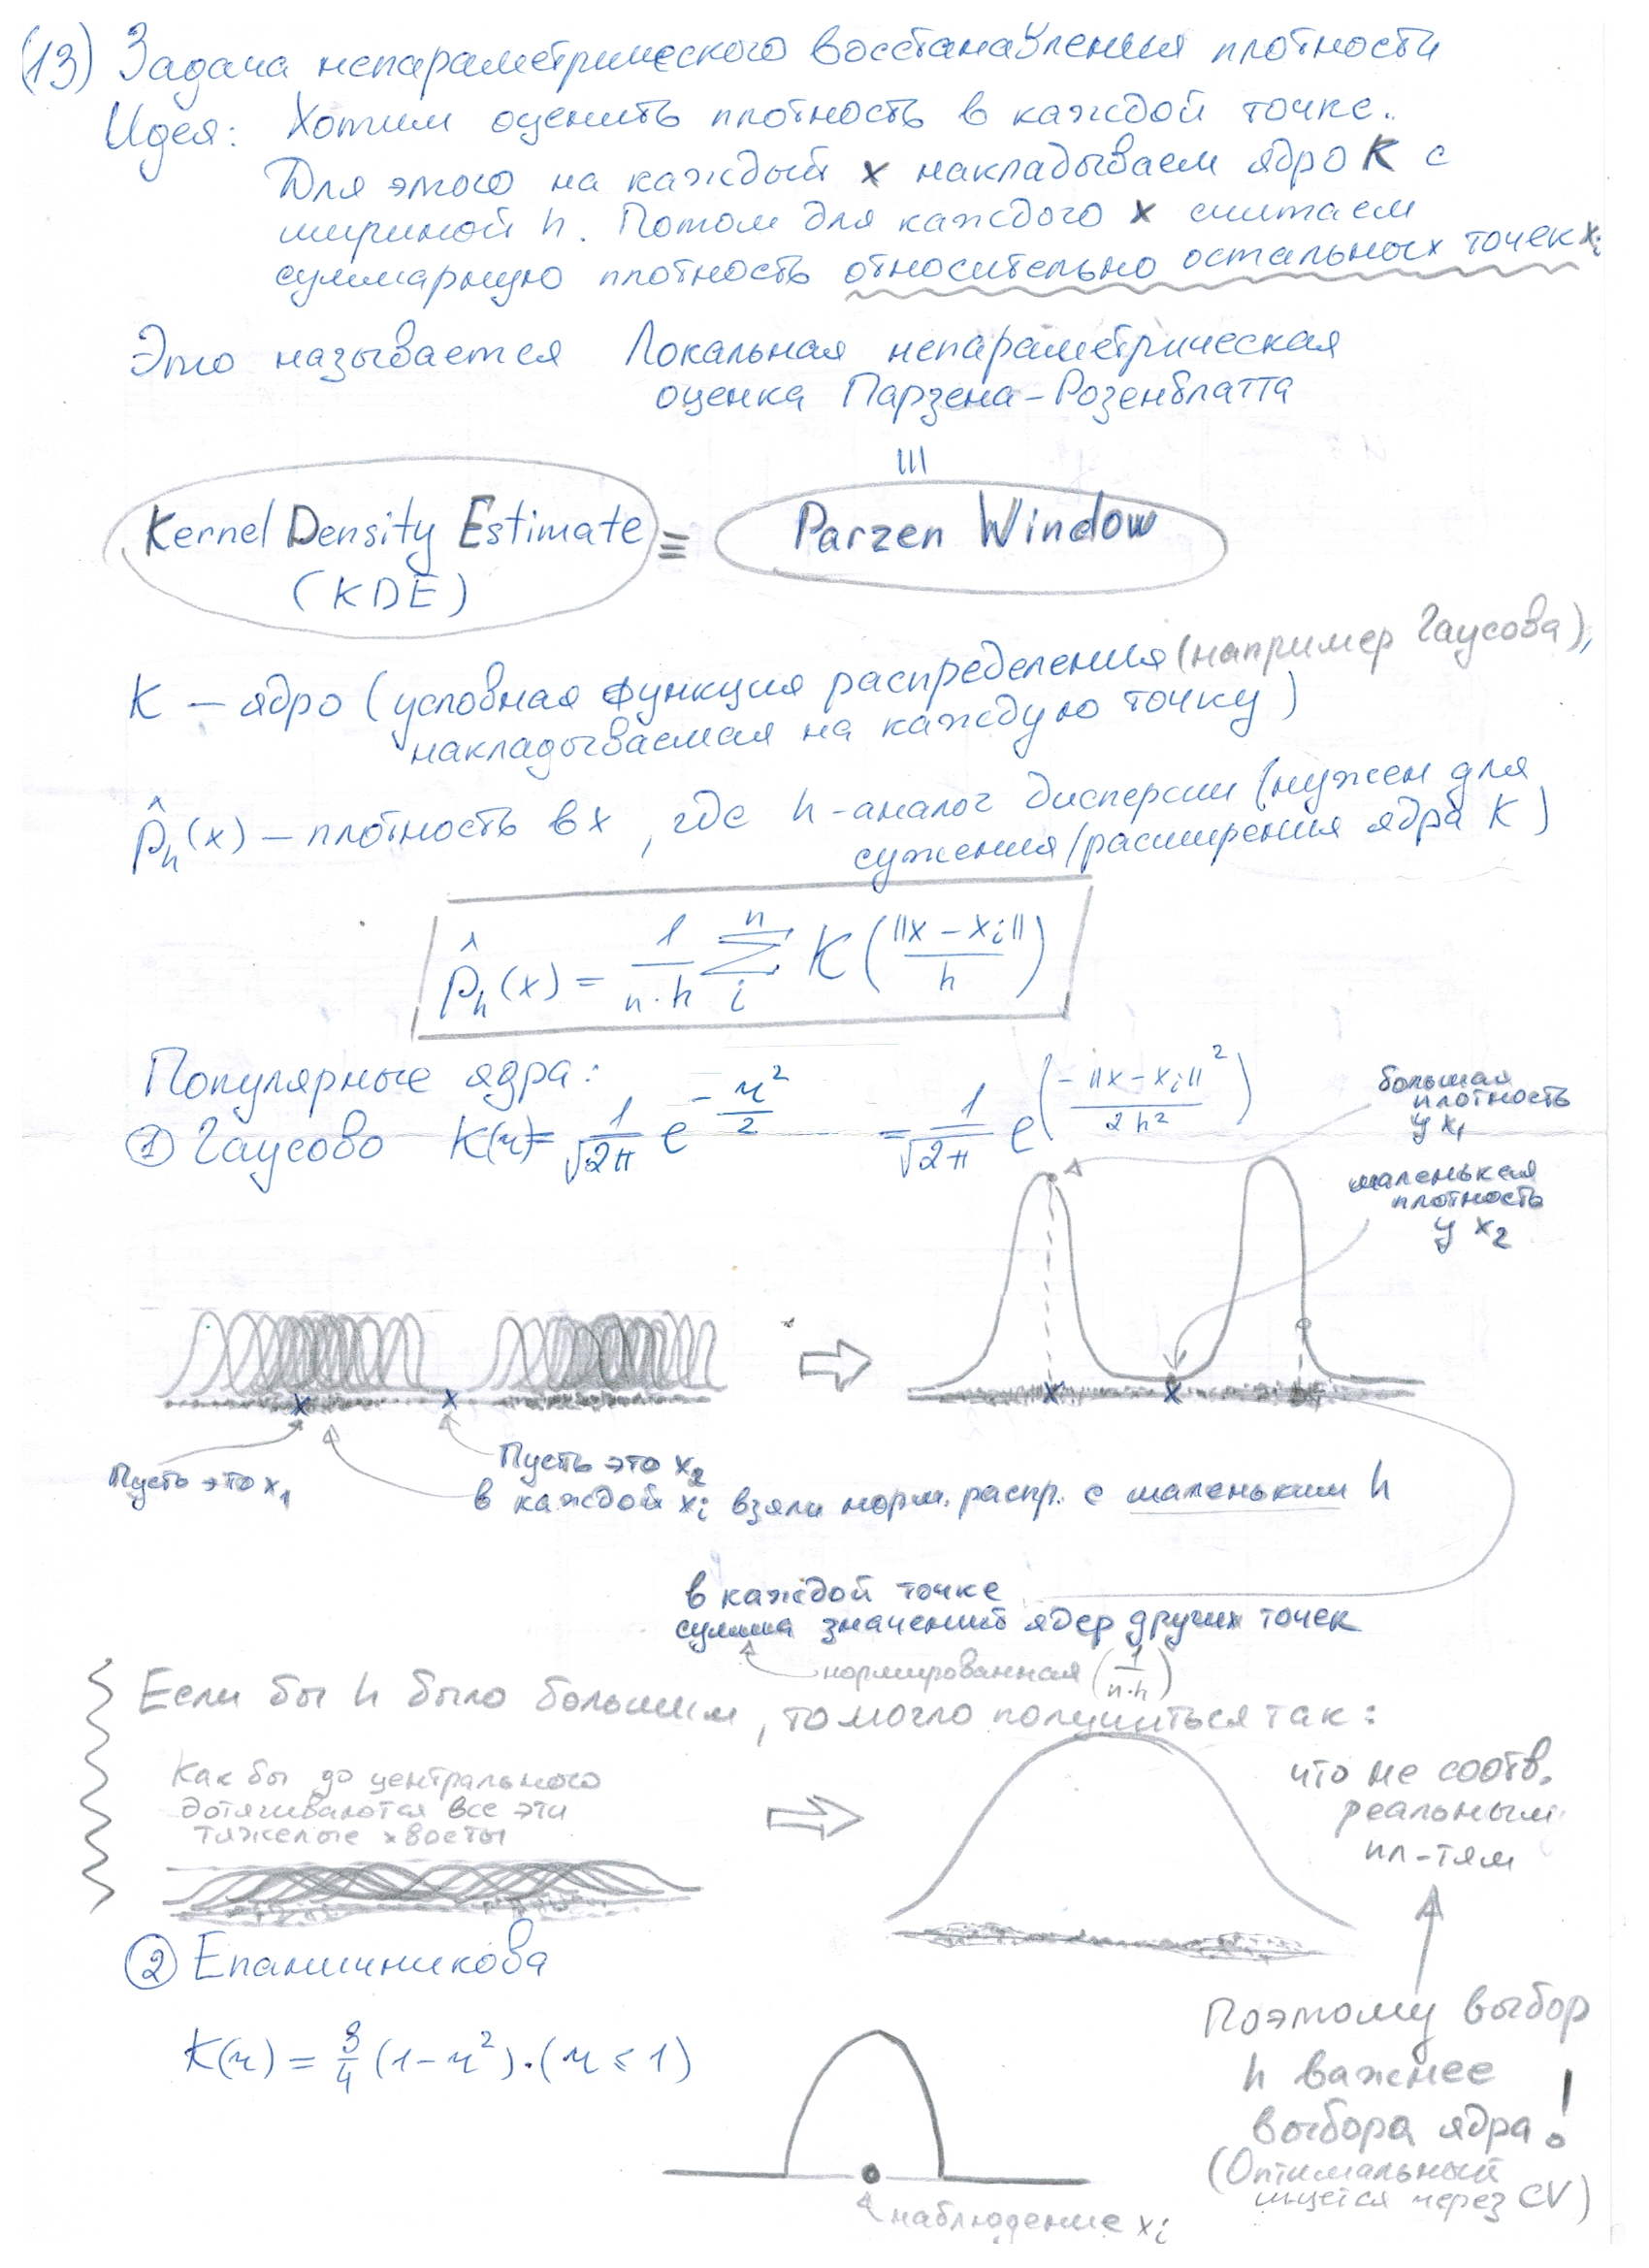 (13) Задача непараметрического восстанавления плотности
Идея: Хотим оценить плотность в каждой точке.
Для этого на каждый x накладываем ядро K с
шириной h. Потом для каждого x считаем
суммарную плотность относительно остальных точек xᵢ
Это называется Локальная непараметрическая
оценка Парзена-Розенблатта
|||
Kernel Density Estimate ≡ Parzen Window
(KDE)
K – ядро (условная функция распределения (например Гаусова),
накладываемая на каждую точку)
p̂ₕ(x) – плотность в x, где h-аналог дисперсии (нужен для
сужения/расширения ядра K)
p̂ₕ(x) = 1/(n·h) Σᵢⁿ K(||x – xᵢ||/h)
Популярные ядра:
① Гаусово K(r) = 1/√2π e^(-r²/2) = 1/√2π e^(-||x-xᵢ||²/2h²)
большая
плотность
у x₁
маленькая
плотность
у x₂
Пусть это x₁
Пусть это x₂
в каждой xᵢ взяли норм. распр. с маленьким h
в каждой точке
сумма значений ядер других точек
нормированная (1/(n·h))
Если бы h было большим, то могло получиться так:
Как бы до центрального
дотягиваются все эти
тяжелые хвосты
что не соотв.
реальным
пл-тям
② Епаничникова
K(r) = 3/4 (1-r²)·(r ≤ 1)
наблюдение xᵢ
Поэтому выбор
h важнее
выбора ядра!
(Оптимальный
ищется через CV)